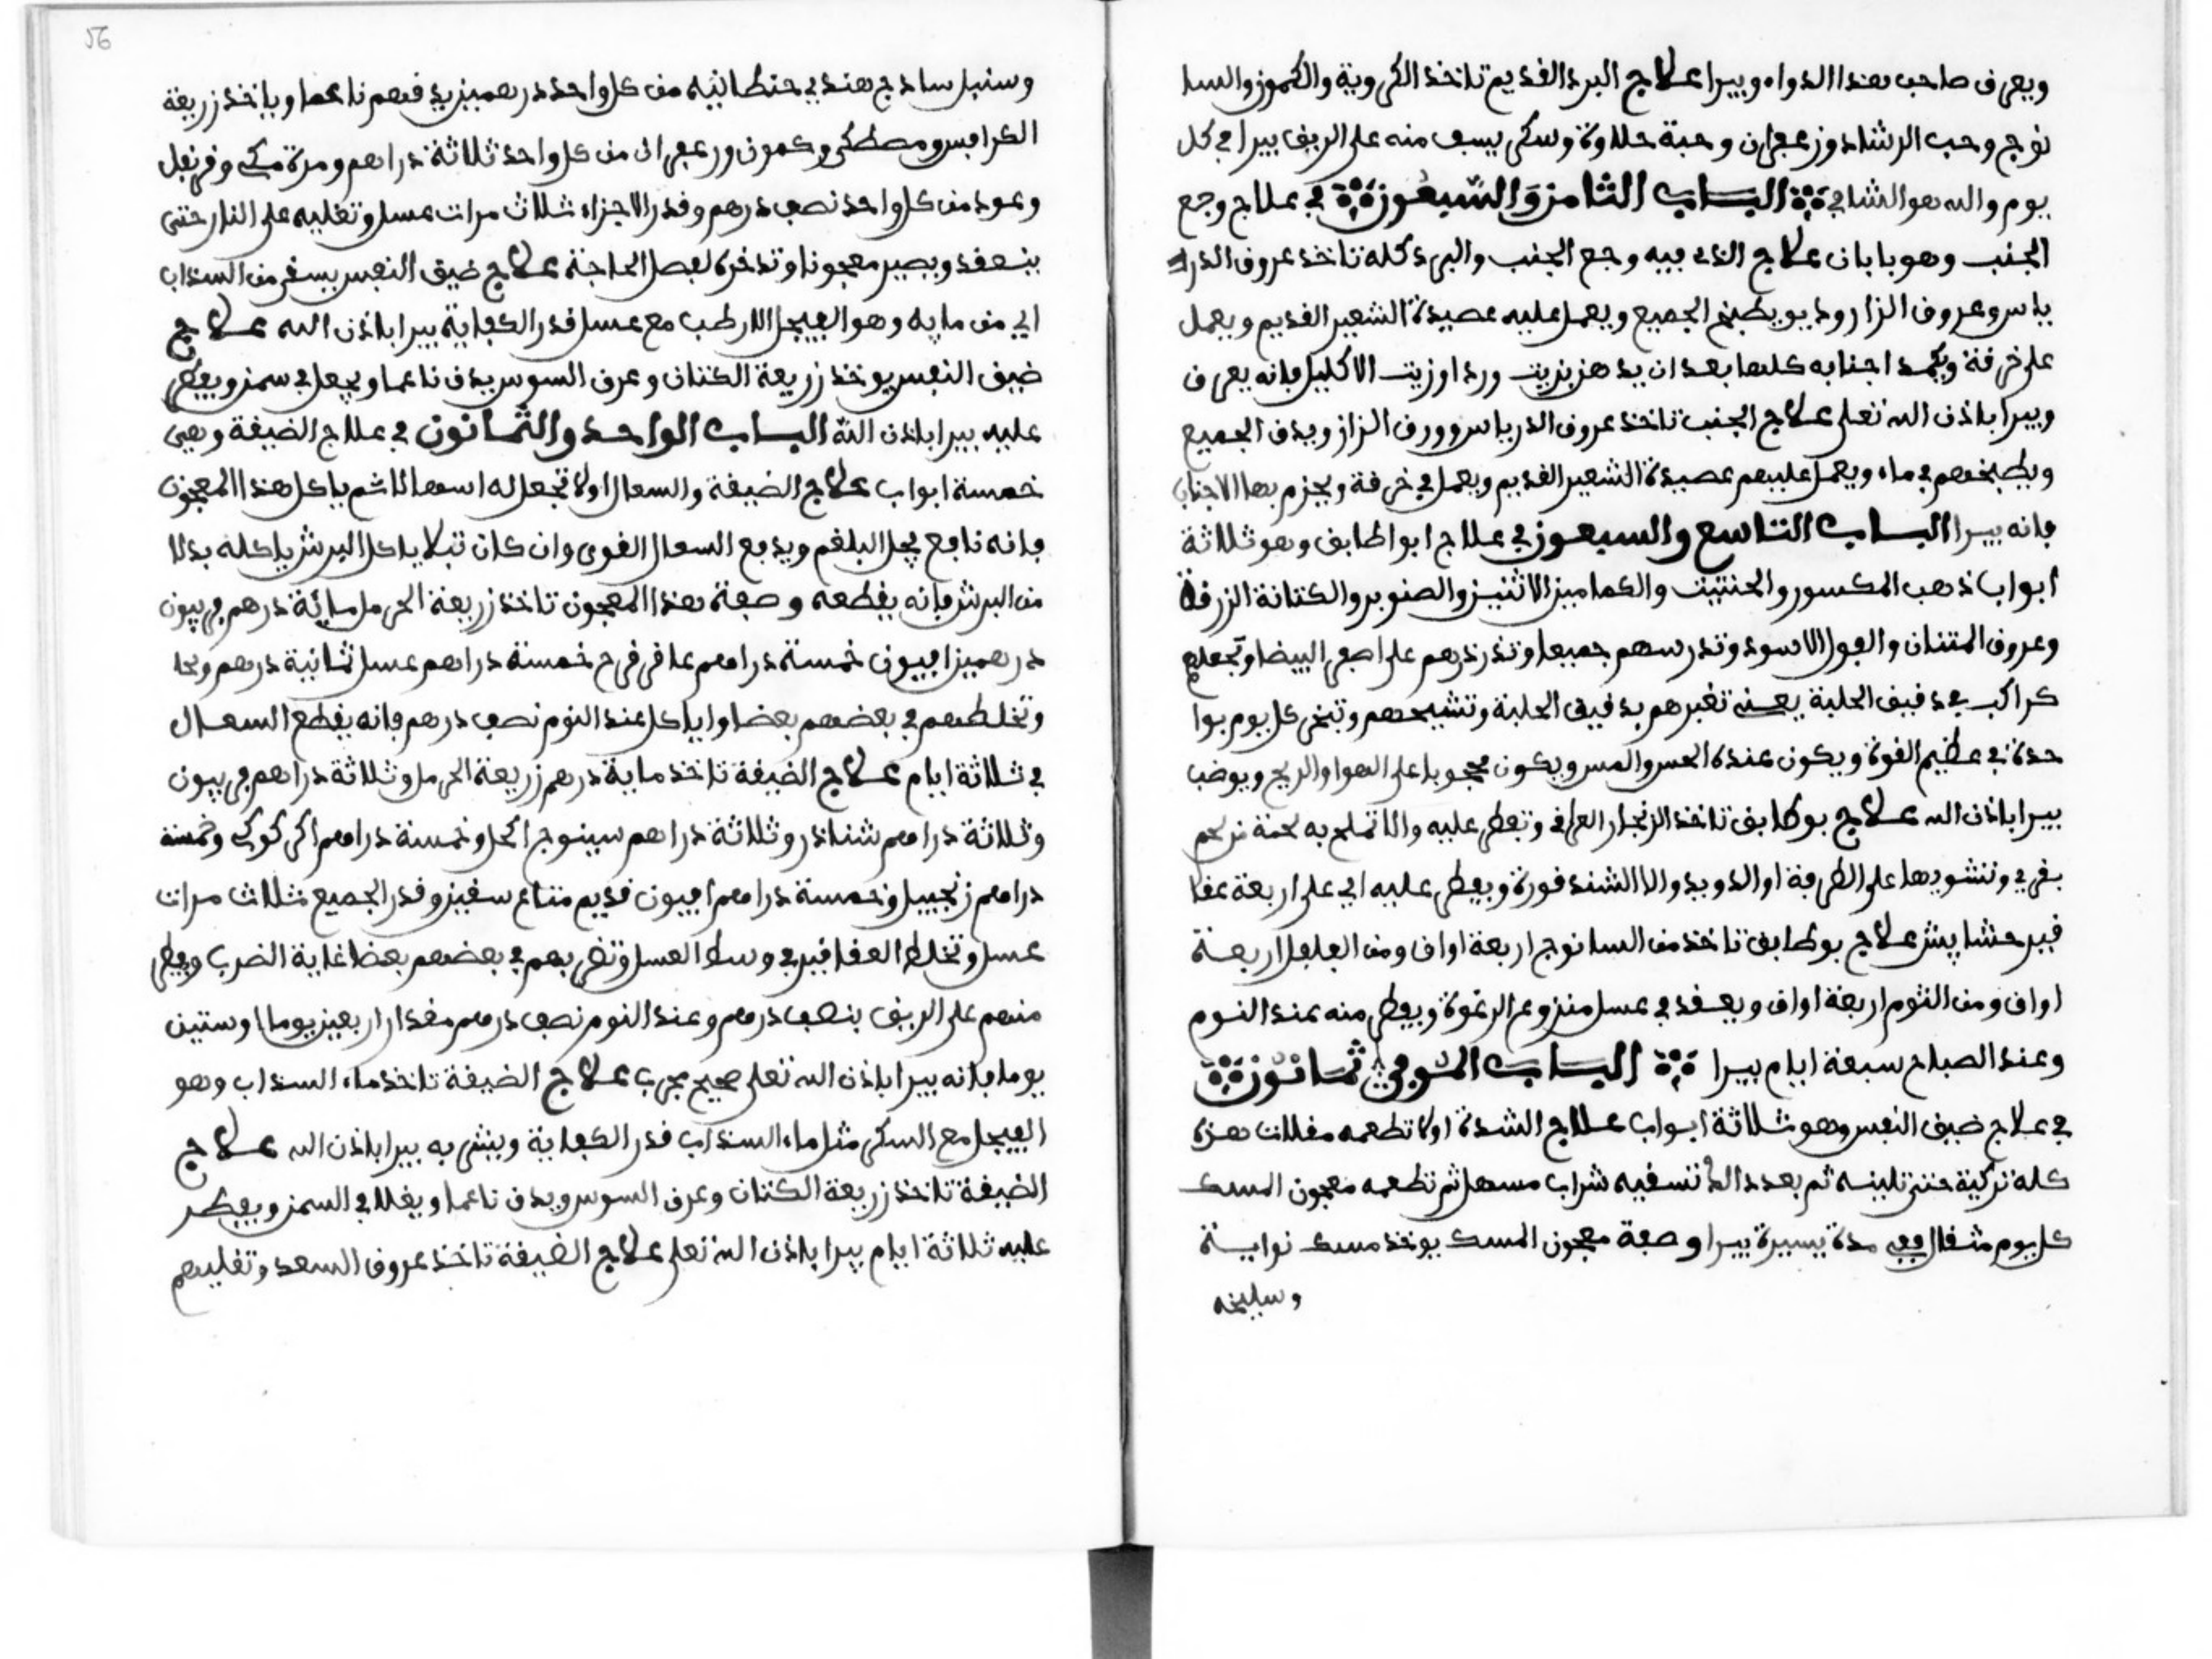 ويعرف صاحب هذا الدواء ويبرا علاج البرد القديم تاخذ الكروية والكمون والسا
نوج وحب الرشاد وزعفران وحبة حلاوة وسكر يسف منه على الريف يبرا في كل
يوم والله هو الشافي الباب الثامن والسبعون في علاج وجع
الجنب وهو بابان علاج الذي فيه وجع الجنب والبرد كله تاخذ عروق الدر
ياس وعروق الزاز وديو يطبخ الجميع ويعمل عليه عصيدة الشعير القديم ويعمل
على خرقة ويكمد اجنابه كلها بعد ان يدهن بزيت ورد او زيت الاكليل فانه يعرف
ويبرا باذن الله تعلى علاج الجنب تاخذ عروق الدرياس وورق الزاز ويدق الجميع
ويطبخهم في ماء ويعمل عليهم عصيدة الشعير القديم ويعمل في خرقة ويحزم بها الاجناب
فانه يبرا الباب التاسع والسبعون في علاج ابو اطابق وهو ثلاثة
ابواب ذهب المكسور والحنتيت والكمامين الاثنين والصنوبر والكتانة الزرقة
وعروق المتنان والفول الاسود وتدرسهم جميعا وتذردرهم على اصفر البيضا وتجعلهم
كراكب في دقيق الحلبة يعني تغبرهم بدقيق الحلبة وتشيحهم وتبخر كل يوم بوا
حدة في عظيم القوة ويكون عنده الحس والمس ويكون محجوبا على الهوا والريح ويوضب
يبرا باذن الله علاج بوطابق تاخذ الزنجار العراقي وتفطر عليه والا تملح به لحمة من لحم
بقري وتشويها على الطرفة او الدويدو والا الشندقورة ويفطر عليه اي على اربعة عقا
قير حشايش علاج بوطابق تاخذ من السانوج اربعة اواق ومن الفلفل اربعة
اواق ومن الثوم اربعة اواق ويعقد في عسل منزوع الرغوة ويفطر منه عند النوم
وعند الصباح سبعة ايام يبرا الباب الموفي ثمانون
في علاج ضيق النفس وهو ثلاثة ابواب علاج الشدة اولا تطعمه مقلات هذه
كلة تركية حتى تلينه ثم بعد ذالك تسقيه شراب مسهل ثم تطعمه معجون المسك
كل يوم مثقال مدة يسيرة يبرا وصفة معجون المسك يوخذ مسك نوايسة
وسليخه
وسنبل ساذج هندي حنطانيه من كل واحد درهمين يدقهم ناعما وياخذ زريعة
الكرافس ومصطكى وكمون وزعفران من كل واحد ثلاثة دراهم ومرة مكي وقرنفل
وعود من كل واحد نصف درهم وقدر الاجزاء ثلاث مرات عسل وتغليه على النار حتى
ينعقد ويصير معجونا وتدخره لفصل الحاجة علاج ضيق النفس يسقى من السذاب
اي من مايه وهو الفيجل الارطب مع عسل قدر الكفاية يبرا باذن الله علاج
ضيق النفس يوخذ زريعة الكتان وعرق السوس يدق ناعما ويجعل في سمن ويفطر
عليه يبرا باذن الله الباب الواحد والثمانون في علاج الضيقة وهي
خمسة ابواب علاج الضيقة والسعال اولا تجعل له اسهالا ثم ياكل هذا المعجون
فانه نافع يحل البلغم ويدفع السعال القوي وان كان تبلا ياكل البرش ياكله بدلا
من البرش فانه يقطعه وصفة هذا المعجون تاخذ زريعة الحرمل ماية درهم فربيون
درهمين افيون خمسة دراهم عاقر قرح خمسة دراهم عسل ثمانية درهم
وتخلطهم في بعضهم بعضا وياكل عند النوم نصف درهم فانه يقطع السعال
في ثلاثة ايام علاج الضيقة تاخذ ماية درهم زريعة الحرمل وثلاثة دراهم فربيون
وثلاثة دراهم شناذر وثلاثة دراهم سينوج اكحل وخمسة دراهم اكركوك وخمسة
دراهم زنجبيل وخمسة دراهم افيون قديم متاع سقيز وقدر الجميع ثلاث مرات
عسل وتخلط العقاقير في وسط العسل وتضربهم في بعضهم بعضا غاية الضرب ويفطر
منهم على الريق بنصف درهم وعند النوم نصف درهم مقدار اربعين يوما اوستين
يوما فانه يبرا باذن الله تعلى صحيح مجرب علاج الضيقة تاخذ ماء السذاب وهو
الفيجل مع السكر مثل ماء السذاب قدر الكفاية ويشرب به يبرا باذن الله علاج
الضيقة تاخذ زريعة الكتان وعرق السوس ويدق ناعما ويقلا في السمن ويفطر
عليه ثلاثة ايام يبرا باذن الله تعلى علاج الضيقة تاخذ عروق السعد وتغليهم
56